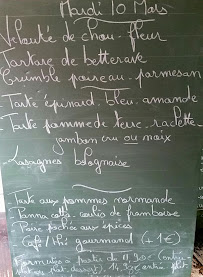 Mardi 10 Mars
Velouté de chou-fleur
Tartare de betterave
Crumble poireau-parmesan
Tarte épinard. bleu. amande
Tarte pomme de terre. raclette.
jambon cru ou noix
Lasagnes bolognaise
Tarte aux pommes normande
Panna cotta. coulis de framboise
Poire pochée aux épices
Café/thé gourmand (+1€)
Formules à partir de 11,90€ (entrée
plat. dessert) 14,90€